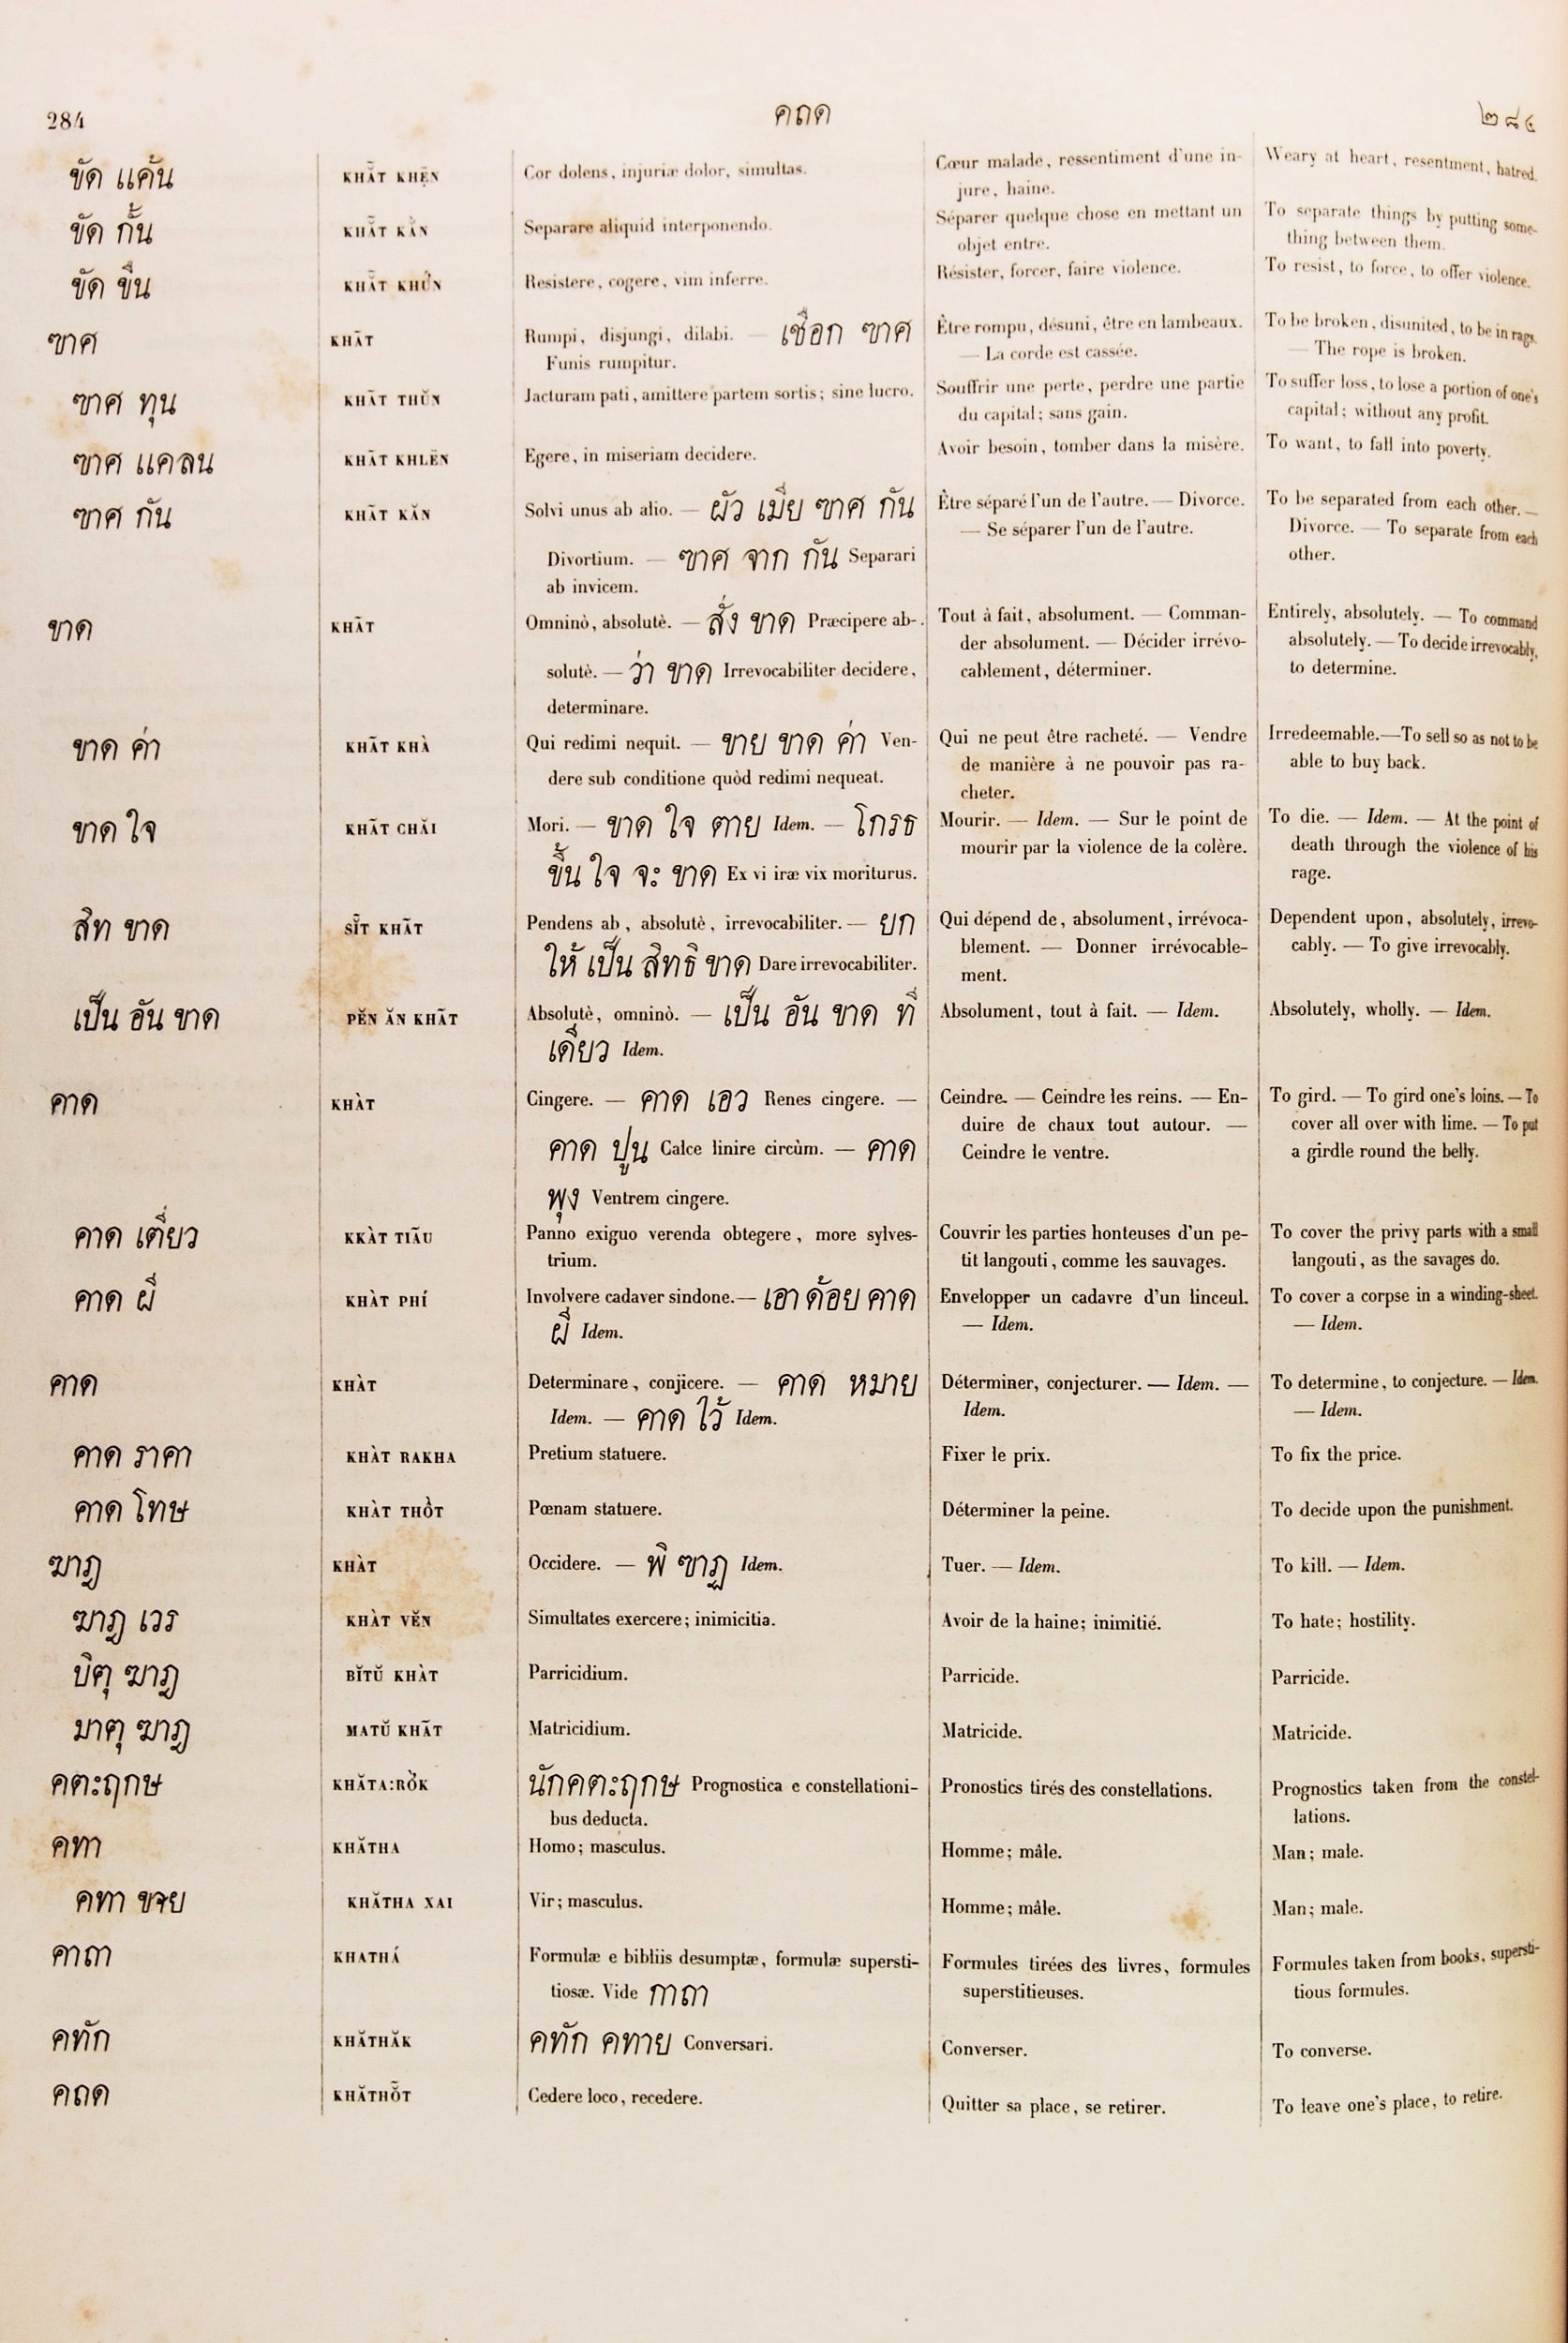 284 คถด ๒๘๔
ขัด แค้น KHĂT KHËN Cor dolens, injuriæ dolor, simultas. Cœur malade, ressentiment d'une in- Weary at heart, resentment, hatred.
jure, haine.
ขัด กั้น KHĂT KĂN Separare aliquid interponendo. Séparer quelque chose en mettant un To separate things by putting some-
objet entre. thing between them.
ขัด ขืน KHĂT KHŬ́N Resistere, cogere, vim inferre. Résister, forcer, faire violence. To resist, to force, to offer violence.
ฃาศ KHÃT Rumpi, disjungi, dilabi. — เชือก ฃาศ Être rompu, désuni, être en lambeaux. To be broken, disunited, to be in rags.
Funis rumpitur. — La corde est cassée. — The rope is broken.
ฃาศ ทุน KHÃT THŬN Jacturam pati, amittere partem sortis; sine lucro. Souffrir une perte, perdre une partie To suffer loss, to lose a portion of one's
du capital; sans gain. capital; without any profit.
ฃาศ แคลน KHÃT KHLËN Egere, in miseriam decidere. Avoir besoin, tomber dans la misère. To want, to fall into poverty.
ฃาศ กัน KHÃT KĂN Solvi unus ab alio. — ผัว เมีย ฃาศ กัน Être séparé l'un de l'autre. — Divorce. To be separated from each other. —
Divortium. — ฃาศ จาก กัน Separari — Se séparer l'un de l'autre. Divorce. — To separate from each
ab invicem. other.
ขาด KHÃT Omninò, absolutè. — สั่ง ขาด Præcipere ab- Tout à fait, absolument. — Comman- Entirely, absolutely. — To command
solutè. — ว่า ขาด Irrevocabiliter decidere, der absolument. — Décider irrévo- absolutely. — To decide irrevocably,
determinare. cablement, déterminer. to determine.
ขาด ค่า KHÃT KHÀ Qui redimi nequit. — ขาย ขาด ค่า Ven- Qui ne peut être racheté. — Vendre Irredeemable. — To sell so as not to be
dere sub conditione quòd redimi nequeat. de manière à ne pouvoir pas ra- able to buy back.
cheter.
ขาด ใจ KHÃT CHĂI Mori. — ขาด ใจ ตาย Idem. — โกรธ Mourir. — Idem. — Sur le point de To die. — Idem. — At the point of
ขึ้น ใจ จะ ขาด Ex vi iræ vix moriturus. mourir par la violence de la colère. death through the violence of his
rage.
สิท ขาด SĬT KHÃT Pendens ab, absolutè, irrevocabiliter. — ยก Qui dépend de, absolument, irrévoca- Dependent upon, absolutely, irrevo-
ให้ เป็น สิทธิ ขาด Dare irrevocabiliter. blement. — Donner irrévocable- cably. — To give irrevocably.
ment.
เป็น อัน ขาด PĔN ĂN KHÃT Absolutè, omninò. — เป็น อัน ขาด ที่ Absolument, tout à fait. — Idem. Absolutely, wholly. — Idem.
เดียว Idem.
คาด KHÀT Cingere. — คาด เอว Renes cingere. — Ceindre. — Ceindre les reins. — En- To gird. — To gird one's loins. — To
คาด ปูน Calce linire circùm. — คาด duire de chaux tout autour. — cover all over with lime. — To put
พุง Ventrem cingere. Ceindre le ventre. a girdle round the belly.
คาด เตี่ยว KKÀT TIÃU Panno exiguo verenda obtegere, more sylves- Couvrir les parties honteuses d'un pe- To cover the privy parts with a small
trium. tit langouti, comme les sauvages. langouti, as the savages do.
คาด ผี KHÀT PHÍ Involvere cadaver sindone. — เอา ด้อย คาด Envelopper un cadavre d'un linceul. To cover a corpse in a winding-sheet.
ผี Idem. — Idem. — Idem.
คาด KHÀT Determinare, conjicere. — คาด หมาย Déterminer, conjecturer. — Idem. — To determine, to conjecture. — Idem.
Idem. — คาด ไว้ Idem. Idem. — Idem.
คาด ราคา KHÀT RAKHA Pretium statuere. Fixer le prix. To fix the price.
คาด โทษ KHÀT THỒT Pœnam statuere. Déterminer la peine. To decide upon the punishment.
ฆาฎ KHÀT Occidere. — พิ ฆาฏ Idem. Tuer. — Idem. To kill. — Idem.
ฆาฎ เวร KHÀT VĔN Simultates exercere; inimicitia. Avoir de la haine; inimitié. To hate; hostility.
บิตุ ฆาฎ BĬTŬ KHÀT Parricidium. Parricide. Parricide.
มาตุ ฆาฎ MATŬ KHÃT Matricidium. Matricide. Matricide.
คตะฤกษ KHĂTA:RỜK นักคตะฤกษ Prognostica e constellationi- Pronostics tirés des constellations. Prognostics taken from the constel-
bus deducta. lations.
คทา KHĂTHA Homo; masculus. Homme; mâle. Man; male.
คทา ชาย KHĂTHA XAI Vir; masculus. Homme; mâle. Man; male.
คาถา KHATHÁ Formulæ e bibliis desumptæ, formulæ supersti- Formules tirées des livres, formules Formules taken from books, supersti-
tiosæ. Vide กาถา superstitieuses. tious formules.
คทัก KHĂTHĂK คทัก คทาย Conversari. Converser. To converse.
คถด KHĂTHỖT Cedere loco, recedere. Quitter sa place, se retirer. To leave one's place, to retire.